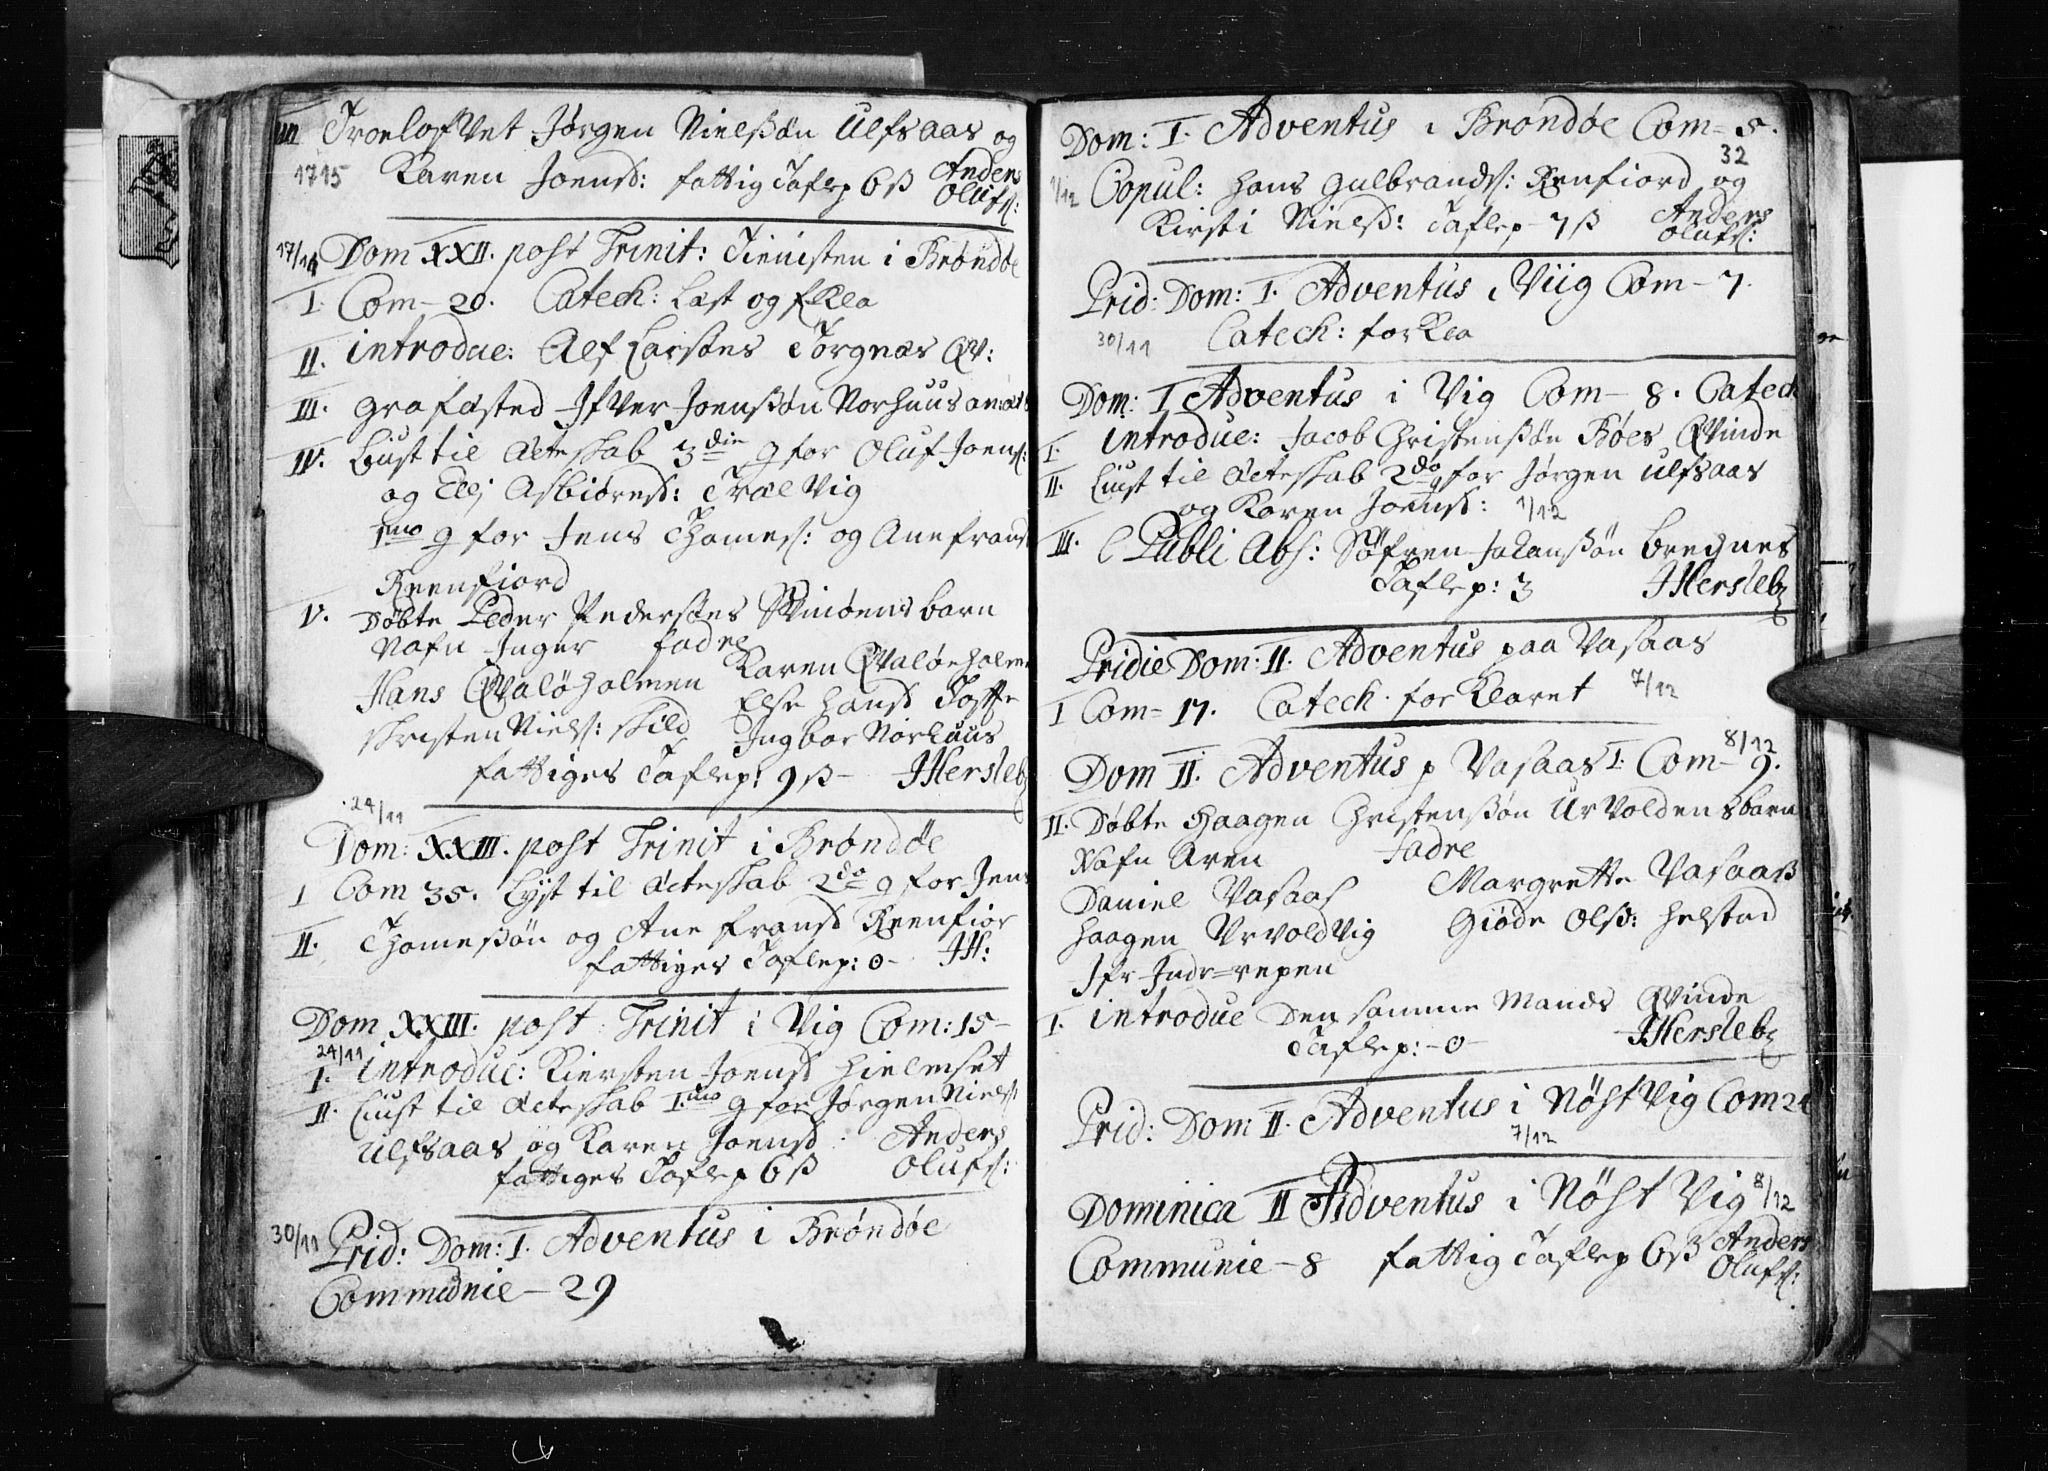 III Troelofvet Jørgen Nielsøn Ulfsaas og
1715 Karen Joensd: fattig Taflep 6 ß Anders
Olufs:
17/11 Dom XXII. post Trinit: Tienisten i Brøndøe
I. Com - 20. Catech: Læst og
II. introdue: Alf Larsøns Torgnæs QV:
III. Grafæsted Ifver Joensøn Norhuus
IV. Liust til Ægteskab 3 die g for Oluf Joens:
og Elj Asbiørnsd: TrælVig
1mo g for Jens Thomes: og Ane frans
Reenfiord
V. Døbte Peder Pedersøns barn
Nafn Inger fadre
Hans QValøholmen Karen QValøeholm
Else Hansd Toft
Christen Niels: skild Ingbor Norhuus
fattiges Taflep: 9 ß - JHersleb
24/11
Dom: XXIII. post Trinit i Brøndøe
I Com 35. Lyst til Ægteskab 2do g for Jens
II. Thomesøn og Ane fransd Reenfior
fattiges Taflep: 0 - JH:
Dom XXIII. post Trinit i Vig Com: 15 -
24/11
I. introdue: Kiersten Joensd Hielmset
II. Liust til Ægteskab I.mo g for Jørgen Niels
Ulfsaas og Karen Joensd: Anders
fattiges Taflep 6 ß Olufs:
30/11 Prid: Dom: I. Adventus i Brøndøe
Communie - 29
Dom: I. Adventus i Brøndøe Com = 5.
32
1/12 Copul: Hans Gulbrands: Renfiord og
Kirsti Nielsd: Taflep - 7 ß Anders
Olufs:
Prid: Dom: I. Adventus i Viig Com - 7.
30/11 Catech: forklea
Dom: I Adventus i Vig Com - 8. Catech
I. introdue: Jacob Christensøn Bøes QVinde
II. Liust til Ægteskab 2do g for Jørgen Ulfsaas
og Karen Joensd: 1/12
III. Publi Abs: Søfren Johansøn Bregnes
Taflep: 3 JHersleb
Pridie Dom: II. Adventus paa Vasaas
I Com = 17. Catech. forklaret 7/12
8/12
Dom II. Adventus p Vasaas I. Com - 9.
II. Døbte Haagen Christensøn UrVoldens barn
Nafn Aren Fadre
Daniel Vasaas Margrette Vasaas
Haagen VrvoldVig Giøde Olsd: Helstad
Ifr Indr=repen
I. introdue Den samme Mands QVinde
Taflep: - 0 - JHersleb
Prid: Dom: II. Adventus i NøstVig Com 24
7/12
Dominica II Adventus i Nøst Vig 8/12
Communie - 8 fattig Taflep 6 ß Anders
Olufs: